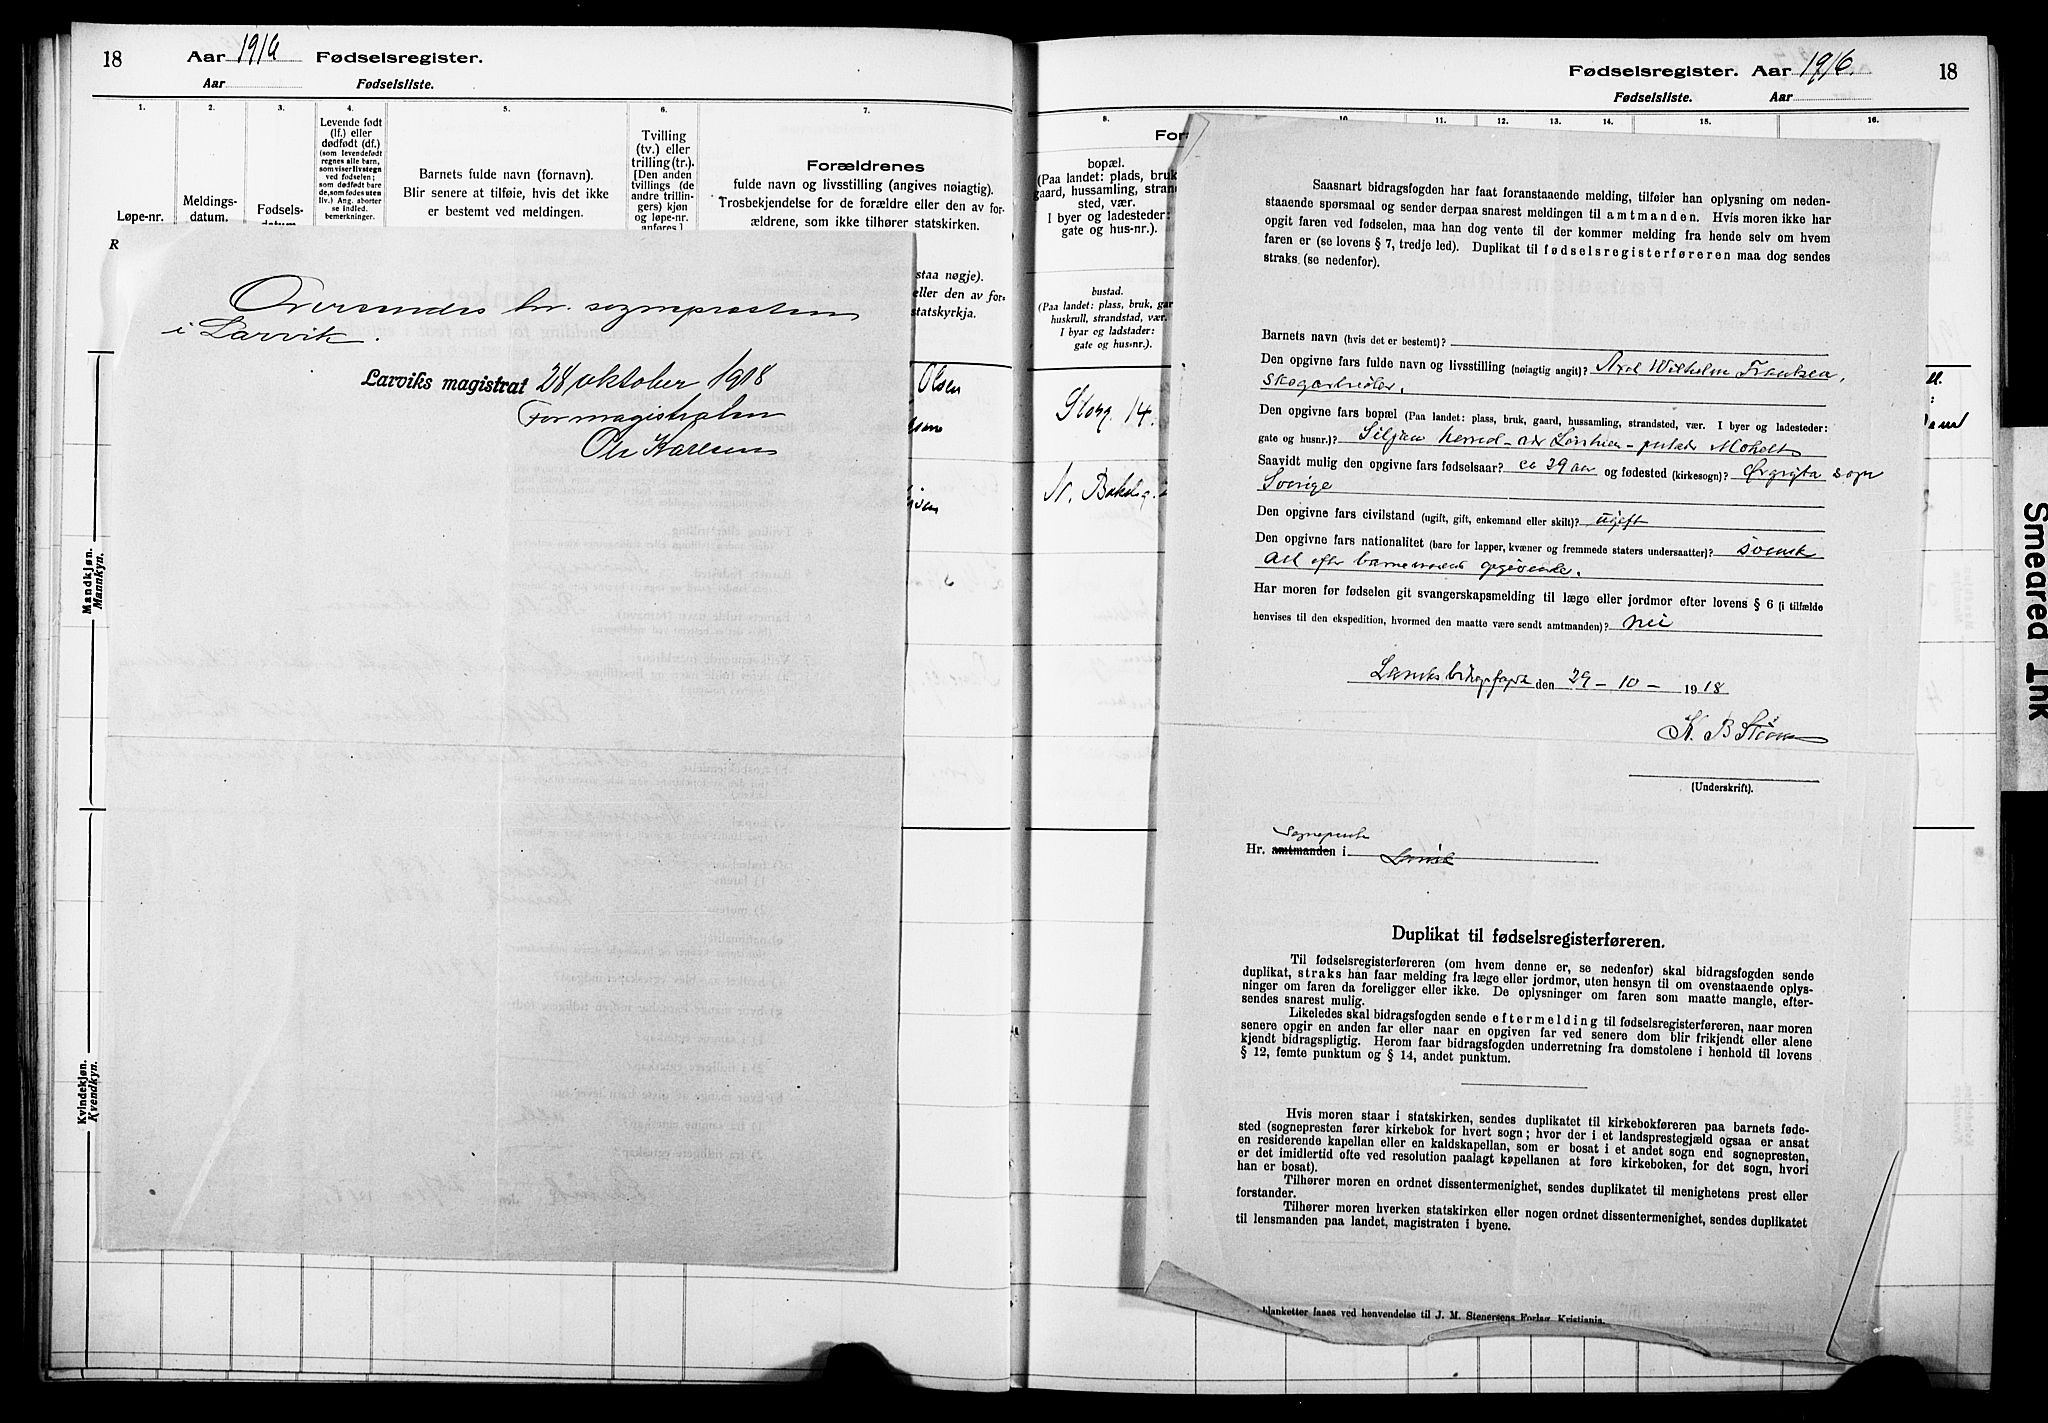 18 Aar 1916 Fødselsregister.
Aar Fødselsliste.
1. 2. 3. 4. 5. 6. 7.
Løpe-nr.
Meldings-
datum.
Fødsels-
datum.
Levende født
(lf.) eller
dødfødt (df.)
(som levendefødt
regnes alle barn,
som viser livstegn
ved fødselen;
som dødfødt bare
de, som fødes uten
liv.) Ang. aborter
se indled.
bemerkninger.
Barnets fulde navn (fornavn).
Blir senere at tilføie, hvis det ikke
er bestemt ved meldingen.
Tvilling
(tv.) eller
trilling (tr.).
[Den anden
tvillings (de
andre trillin-
gers) kjøn
og løpe-nr.
anføres.]
Forældrenes
fulde navn og livsstilling (angives nøiagtig).
Trosbekjendelse for de forældre eller den av for-
ældrene, som ikke tilhører statskirken.
staa nøgje).
eller den av for-
statskyrkja.
R
Oversendes hr. sogneprosten
i Larvik.
Larviks magistrat 28 oktober 1918
For magistraten
Ole Karlsen
Olsen
Mandkjøn.
Mannkyn.
Kvindekjøn.
Kvendkyn.
Fødselsregister. Aar 1916. 18
Fødselsliste. Aar
8. 10. 11. 12. 13. 14. 15. 16.
For
bopæl.
(Paa landet: plads, bruk,
gaard, hussamling, strand-
sted, vær.
I byer og ladesteder:
gate og hus-nr.).
bustad.
(Paa landet: plass, bruk, gar
huskrull, strandstad, vær.
I byar og ladstader:
gate og hus-nr.).
Storg. 14.
N. Bakeg.
Saasnart bidragsfogden har faat foranstaaende melding, tilføier han oplysning om neden-
staaende spørsmaal og sender derpaa snarest meldingen til amtmanden. Hvis moren ikke har
opgit faren ved fødselen, maa han dog vente til der kommer melding fra hende selv om hvem
faren er (se lovens § 7, tredje led). Duplikat til fødselsregisterføreren maa dog sendes
straks (se nedenfor).
Barnets navn (hvis det er bestemt)?
Den opgivne fars fulde navn og livsstilling (nøiagtig angit)? Axel Wilhelm Frantzen,
skogarbeider.
Den opgivne fars bopæl (Paa landet: plass, bruk, gaard, hussamling, strandsted, vær. I byer og ladesteder:
gate og husnr.)? Siljan herred - adr Moholt
Saavidt mulig den opgivne fars fødselsaar? ca 29 aar og fødested (kirkesogn)? sogn
Sverige
Den opgivne fars civilstand (ugift, gift, enkemand eller skilt)? ugift
Den opgivne fars nationalitet (bare for lapper, kvæner og fremmede staters undersaatter)? svensk
Alt efter barnemorens opgivende.
Har moren før fødselen git svangerskapsmelding til læge eller jordmor efter lovens § 6 (i tilfælde
henvises til den ekspedition, hvormed den maatte være sendt amtmanden)? nei
Larviks bidragsfogd den 29 - 10 - 1918
K. B. Strøm
(Underskrift).
Sogneprest
Hr. amtmanden i Larvik
Duplikat til fødselsregisterføreren.
Til fødselsregisterføreren (om hvem denne er, se nedenfor) skal bidragsfogden sende
duplikat, straks han faar melding fra læge eller jordmor, uten hensyn til om ovenstaaende oplys-
ninger om faren da foreligger eller ikke. De oplysninger om faren som maatte mangle, efter-
sendes snarest mulig.
Likeledes skal bidragsfogden sende eftermelding til fødselsregisterføreren, naar moren
senere opgir en anden far eller naar en opgiven far ved senere dom blir frikjendt eller alene
kjendt bidragspligtig. Herom faar bidragsfogden underretning fra domstolene i henhold til lovens
§ 12, femte punktum og § 14, andet punktum.
Hvis moren staar i statskirken, sendes duplikatet til kirkebokføreren paa barnets føde-
sted (sognepresten fører kirkebok for hvert sogn; hvor der i et landsprestegjæld ogsaa er ansat
en residerende kapellan eller en kaldskapellan, som er bosat i et andet sogn end sognepresten,
er det imidlertid ofte ved resolution paalagt kapellanen at føre kirkeboken, for det sogn, hvori
han er bosat).
Tilhører moren en ordnet dissentermenighet, sendes duplikatet til menighetens prest eller
forstander.
Tilhører moren hverken statskirken eller nogen ordnet dissentermenighet, sendes duplikatet
til lensmanden paa landet, magistraten i byene.
blanketter faaes ved henvendelse til J. M. Stenersens Forlag Kristiania.
Smeared Ink